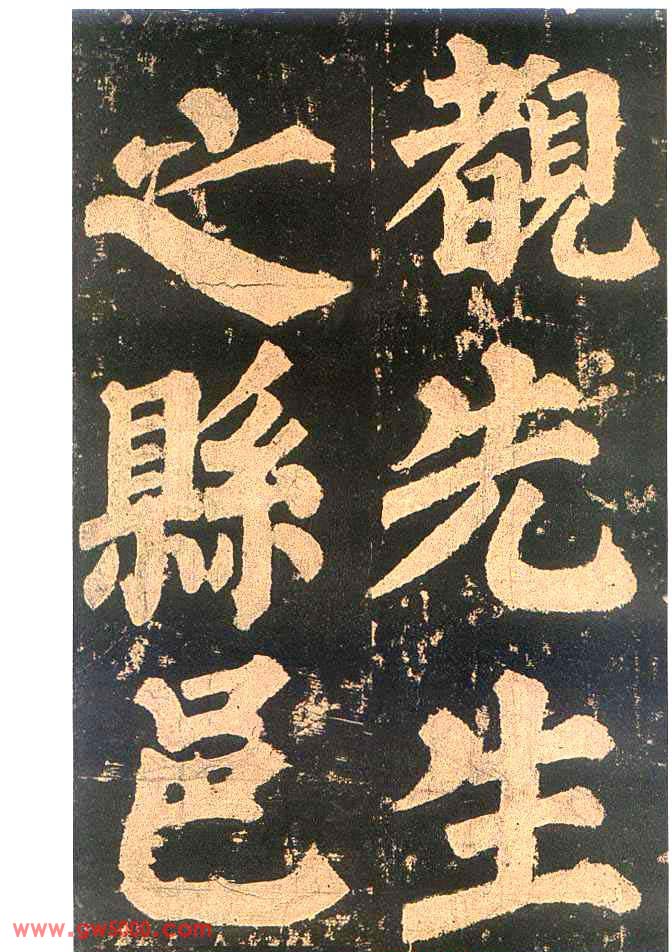 覩先生
之縣邑
www.gw5000.com